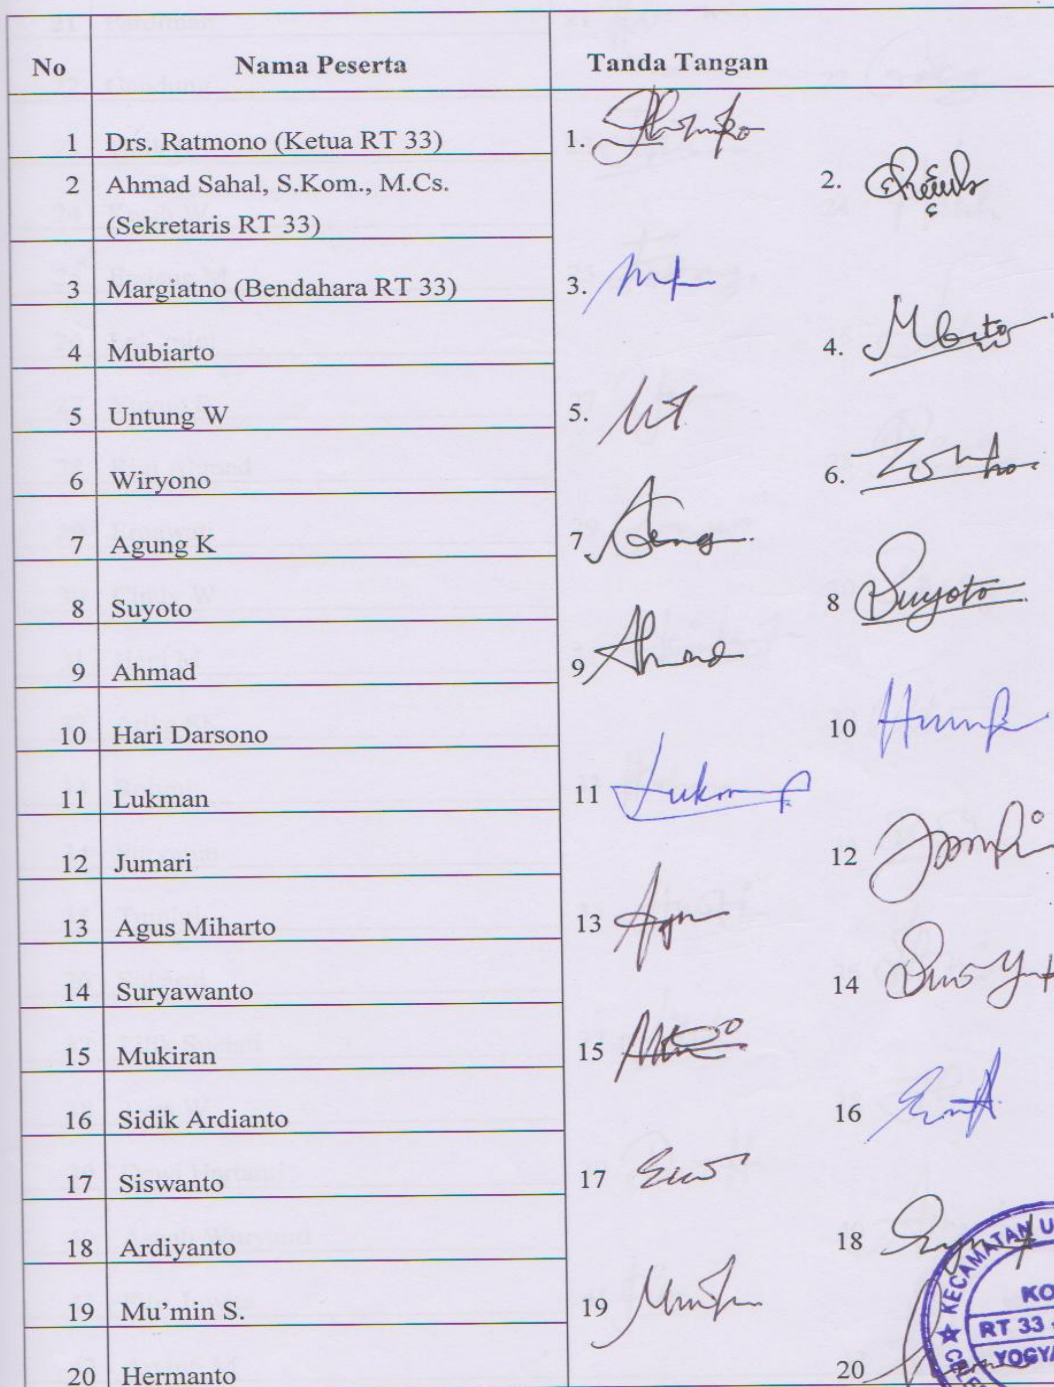 No Nama Peserta Tanda Tangan
1 Drs. Ratmono (Ketua RT 33) 1.
2 Ahmad Sahal, S.Kom., M.Cs. 2.
(Sekretaris RT 33)
3 Margiatno (Bendahara RT 33) 3.
4 Mubiarto 4.
5 Untung W 5.
6 Wiryono 6.
7 Agung K 7
8 Suyoto 8 Suyoto
9 Ahmad 9 Ahmad
10 Hari Darsono 10
11 Lukman 11
12 Jumari 12
13 Agus Miharto 13
14 Suryawanto 14
15 Mukiran 15
16 Sidik Ardianto 16
17 Siswanto 17
18 Ardiyanto 18
19 Mu'min S. 19
20 Hermanto 20
KECAMATAN U
KO
RT 33
YOGYA